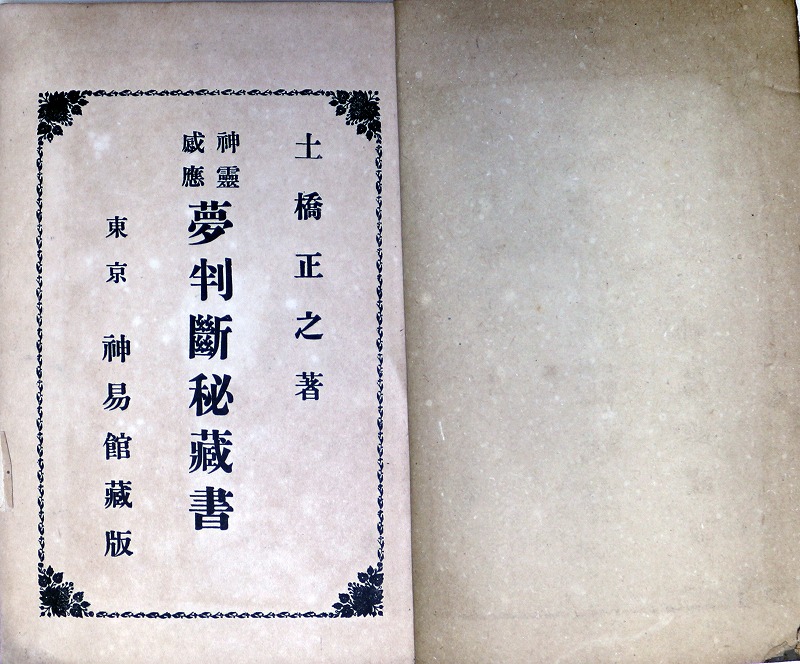 土橋正之著
神靈
感應
夢判斷秘藏書
東京 神易館藏版